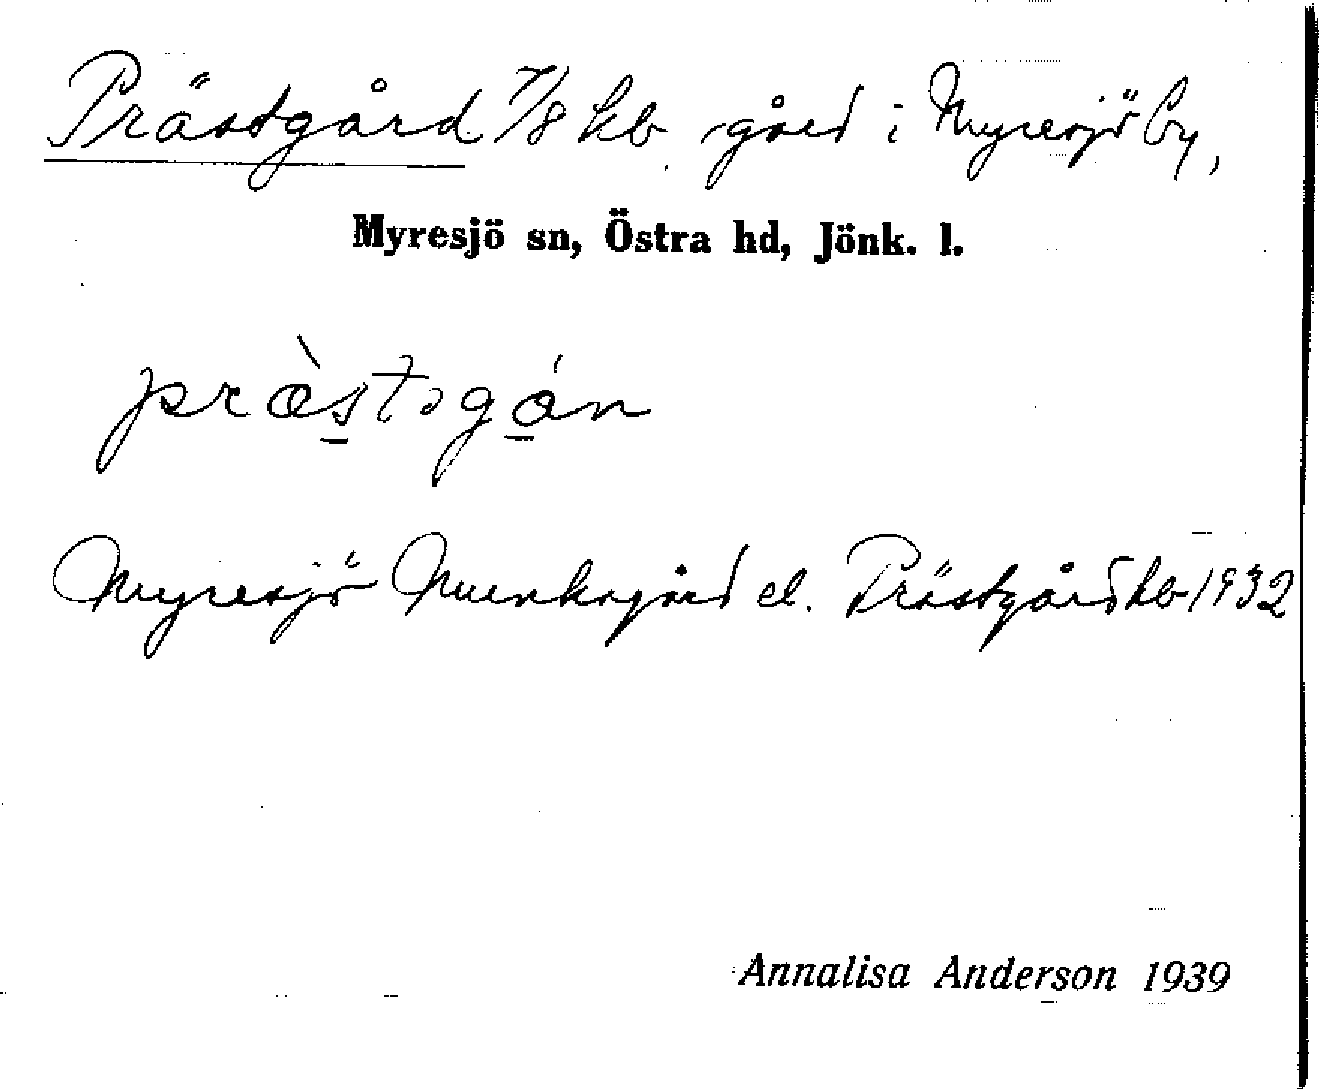 Prästgård 7/8 hb. gård i Myresjö by,
Myresjö sn, Östra hd, Jönk. l.
præ̀stɔgón
Myresjö Munkagård el. Prästgård hb 1932
Annalisa Anderson 1939